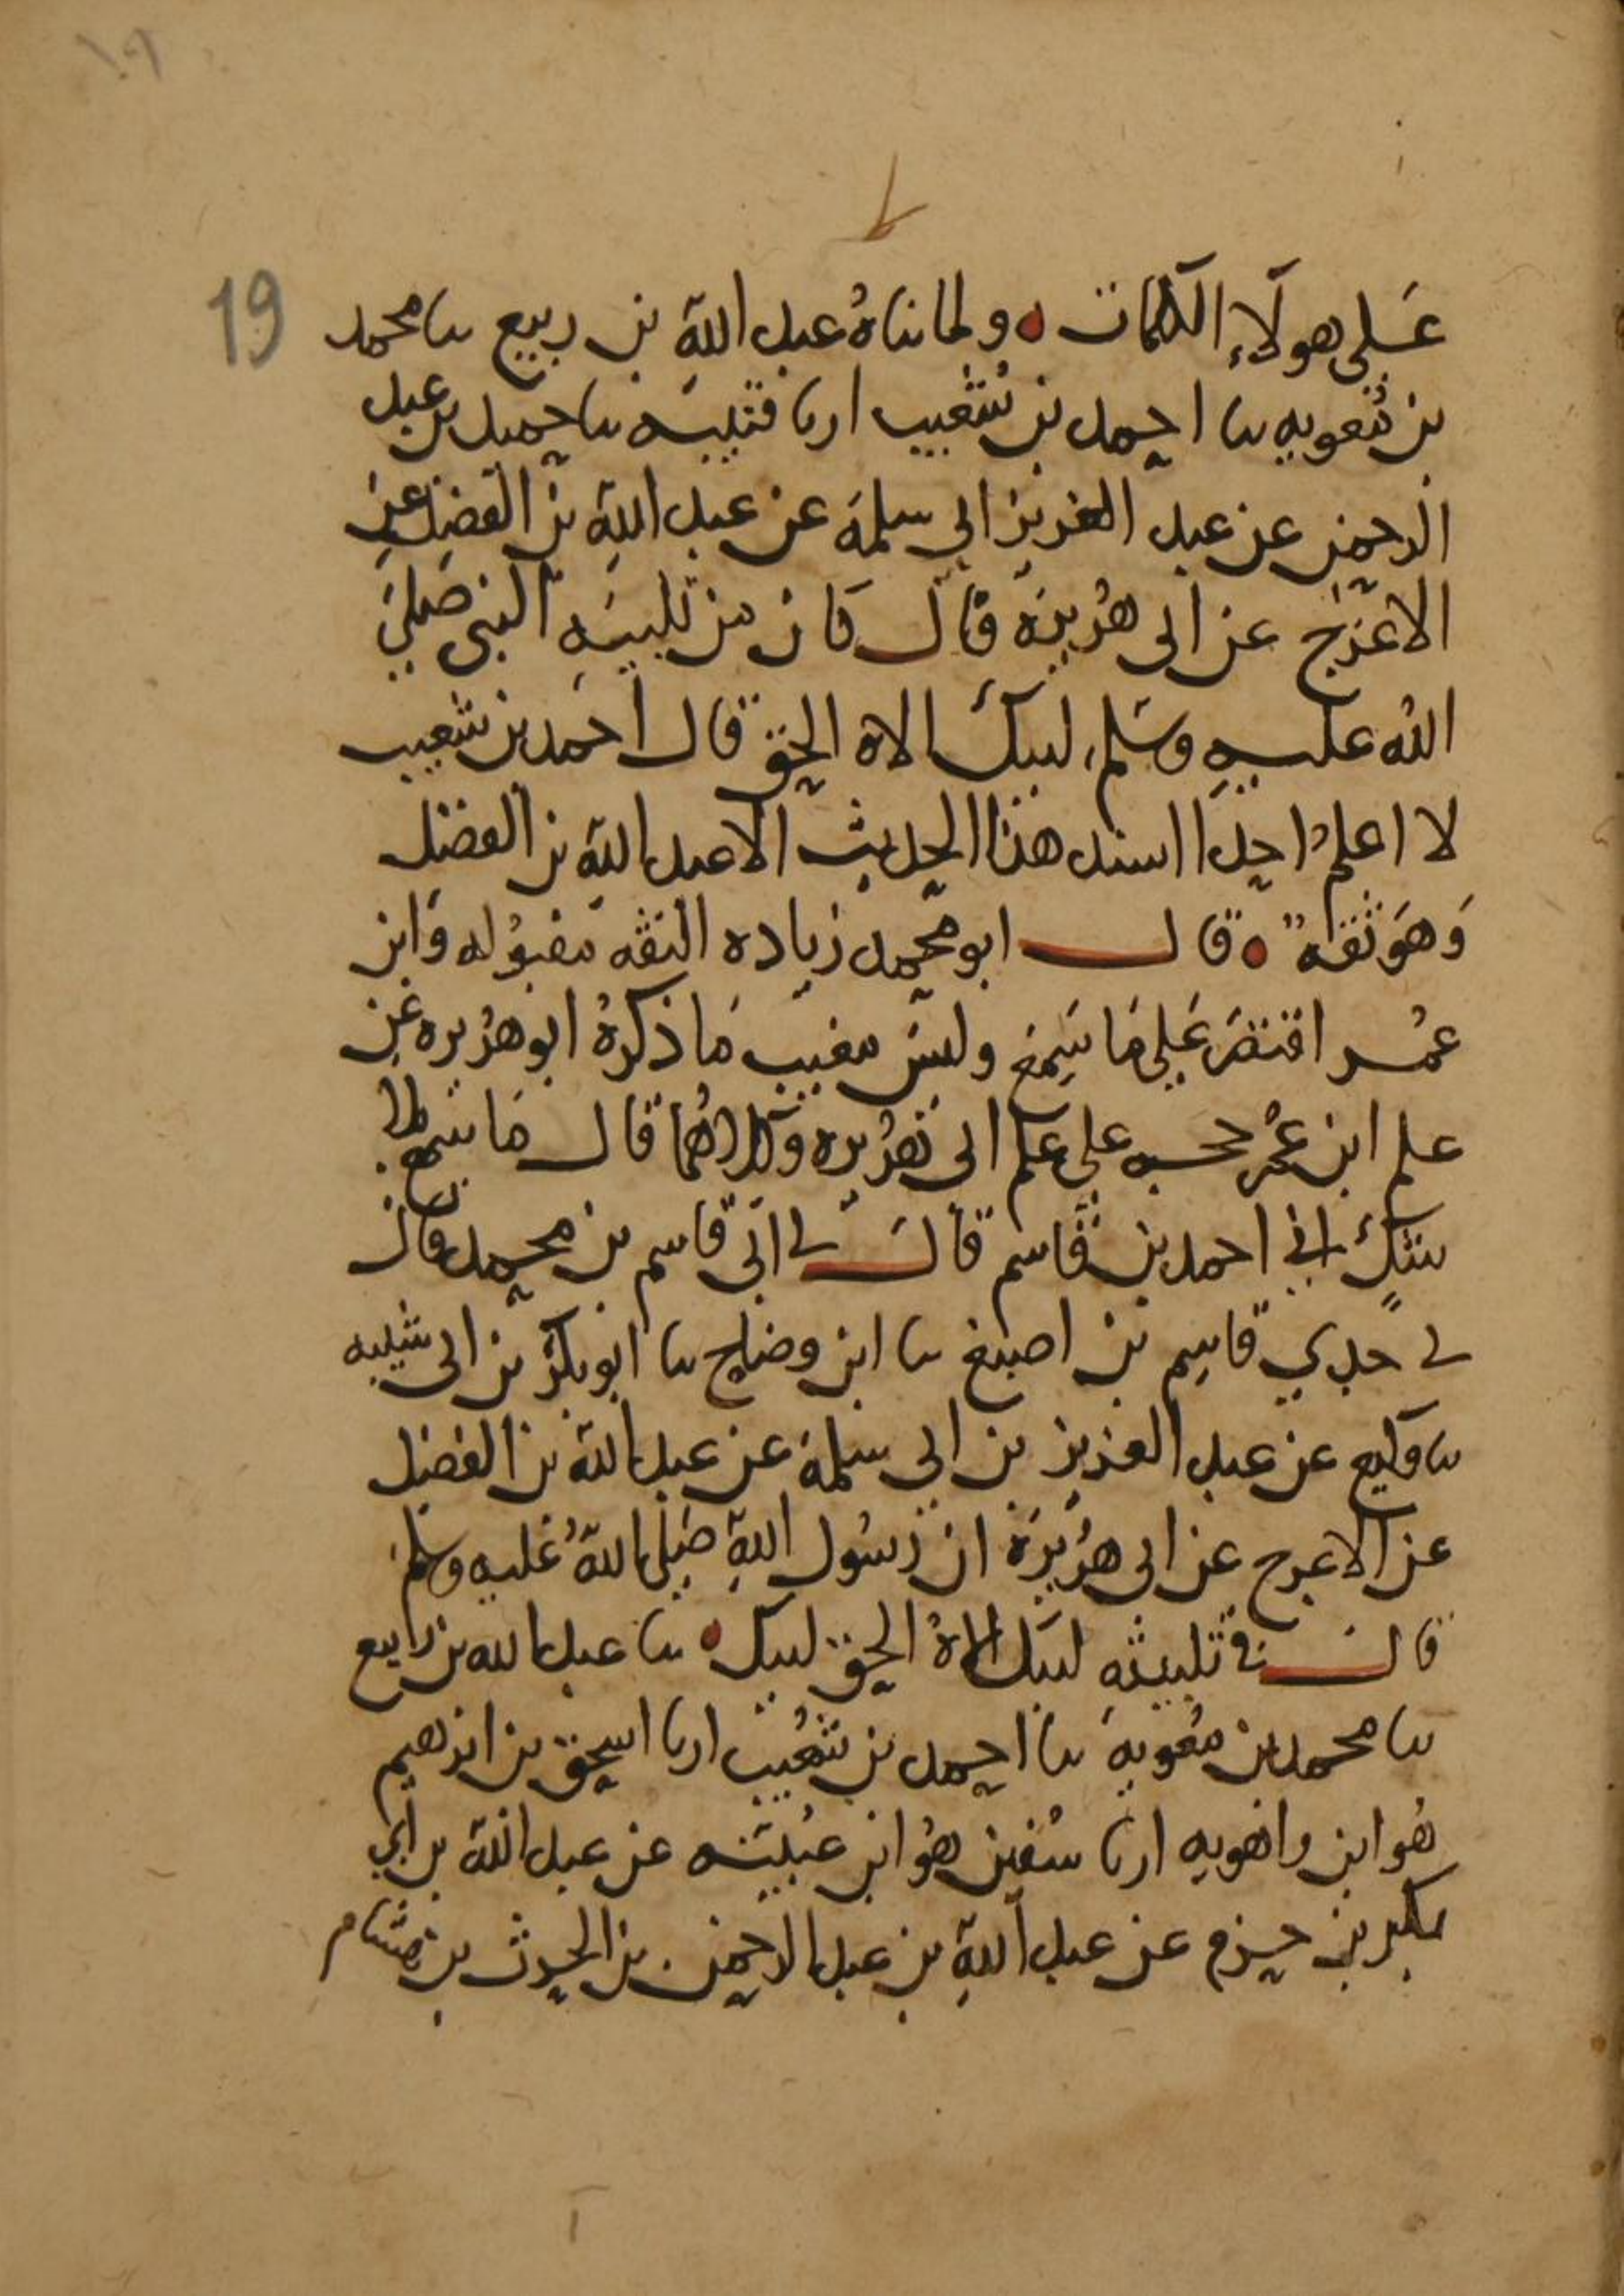 ١٩
19
على هولاء الكلمات ولما ناه عبد الله بن ربيع نا محمد
بن معويه نا احمد بن شعيب ارنا قتيبه نا حميد بن عبد
الرحمن عن عبد العزيز ابي سلمة عن عبد الله بن الفضل عن
الاعرج عن ابى هريرة قال كان من تلبيه النبى صلى
الله عليه وسلم لبيك الاه الحق قال احمد بن شعيب
لا اعلم احدا اسند هذا الحديث الا عبد الله بن الفضل
وهو ثقه قال ابو محمد زياده الثقه مقبوله وابن
عمر اقتصر على ما سمع وليس مغيب ما ذكره ابو هريره عن
علم ابن عمر حجه على علم ابى هريره وكلاهما قال ما سمع
احمد بن قاسم قال لى ابى قاسم بن محمد قال
لى جدي قاسم بن اصبغ نا ابن وضاح نا ابو بكر بن ابى شيبه
نا وكيع عن عبد العزيز بن ابى سلمة عن عبد الله بن الفضل
عن الاعرج عن ابى هريرة ان رسول الله صلى الله عليه وسلم
قال فى تلبيته لبيك الاه الحق لبيك نا عبد الله بن رابيع
نا محمد بن معوية نا احمد بن شعيب ارنا اسحق بن ابرهيم
هو ابن راهويه ارنا سفين هو ابن عيينه عن عبد الله بن ابي
بكر بن حزم عن عبد الله بن عبد الرحمن بن الحرث بن هشام